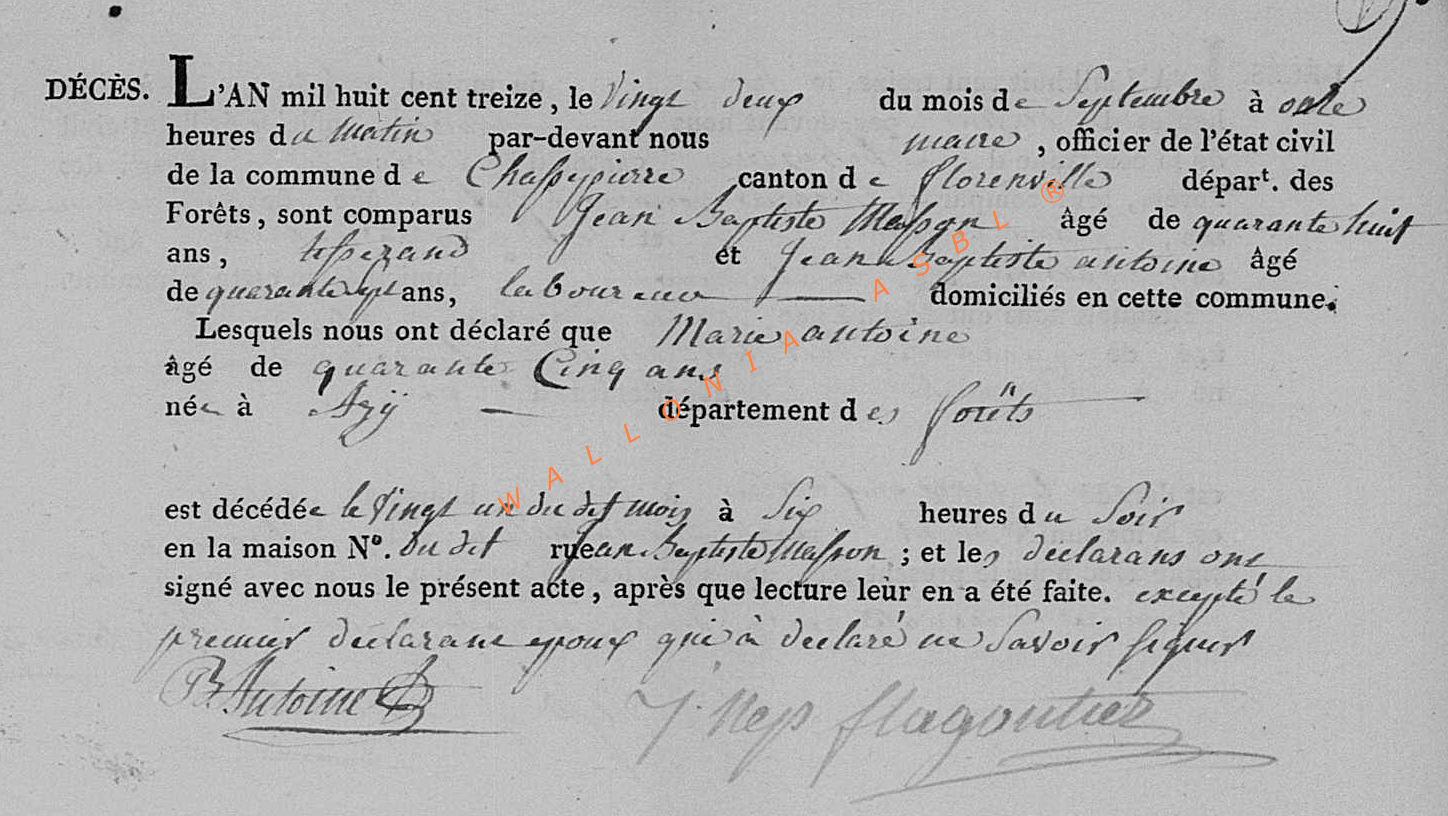 DÉCÈS. L'AN mil huit cent treize, le Vingt deux du mois de Septembre à onze
heures du Matin par-devant nous maire, officier de l'état civil
de la commune de Chassepierre canton de florenville départ. des
Forêts, sont comparus Jean Baptiste Masson âgé de quarante huit
ans, tisserand et Jean Baptiste antoine âgé
de quarante sept ans, laboureur domiciliés en cette commune.
Lesquels nous ont déclaré que Marie antoine
âgé de quarante Cinq ans
née à Azÿ département des forêts
est décédée le Vingt un du dit mois à Six heures du Soir
en la maison No. du dit rue Jean Baptiste Masson ; et les declarans ont
signé avec nous le présent acte, après que lecture leur en a été faite. excepté le
premier declarant epoux qui à declaré ne Savoir signer
Antoine
J. Nep flagontier
WALLONIA ASBL ®